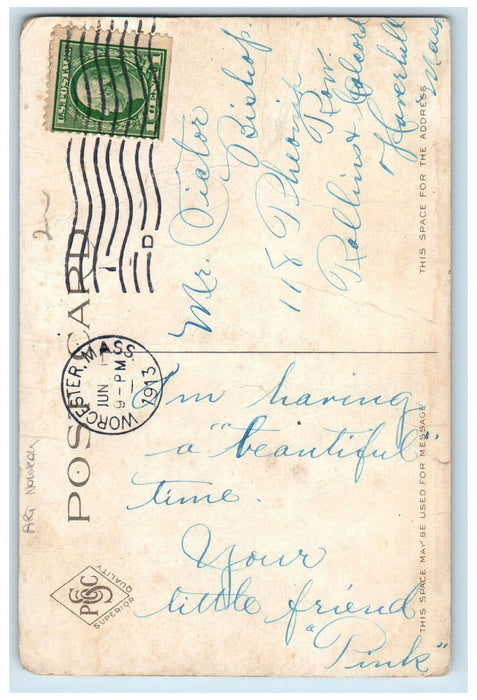 U.S. POSTAGE
1 CENT 1
D
WORCESTER, MASS.
JUN 1
9-PM
1913
POST CARD
2-
ART NOUVEAU
Mr. Victor
Bishop
118 Pheonix
Row
Rollins &
Haverhill
Mass
THIS SPACE FOR THE ADDRESS
I'm having
a "beautiful"
time.
Your
little friend
"Pink"
THIS SPACE MAY BE USED FOR MESSAGE
PSCC
SUPERIOR QUALITY